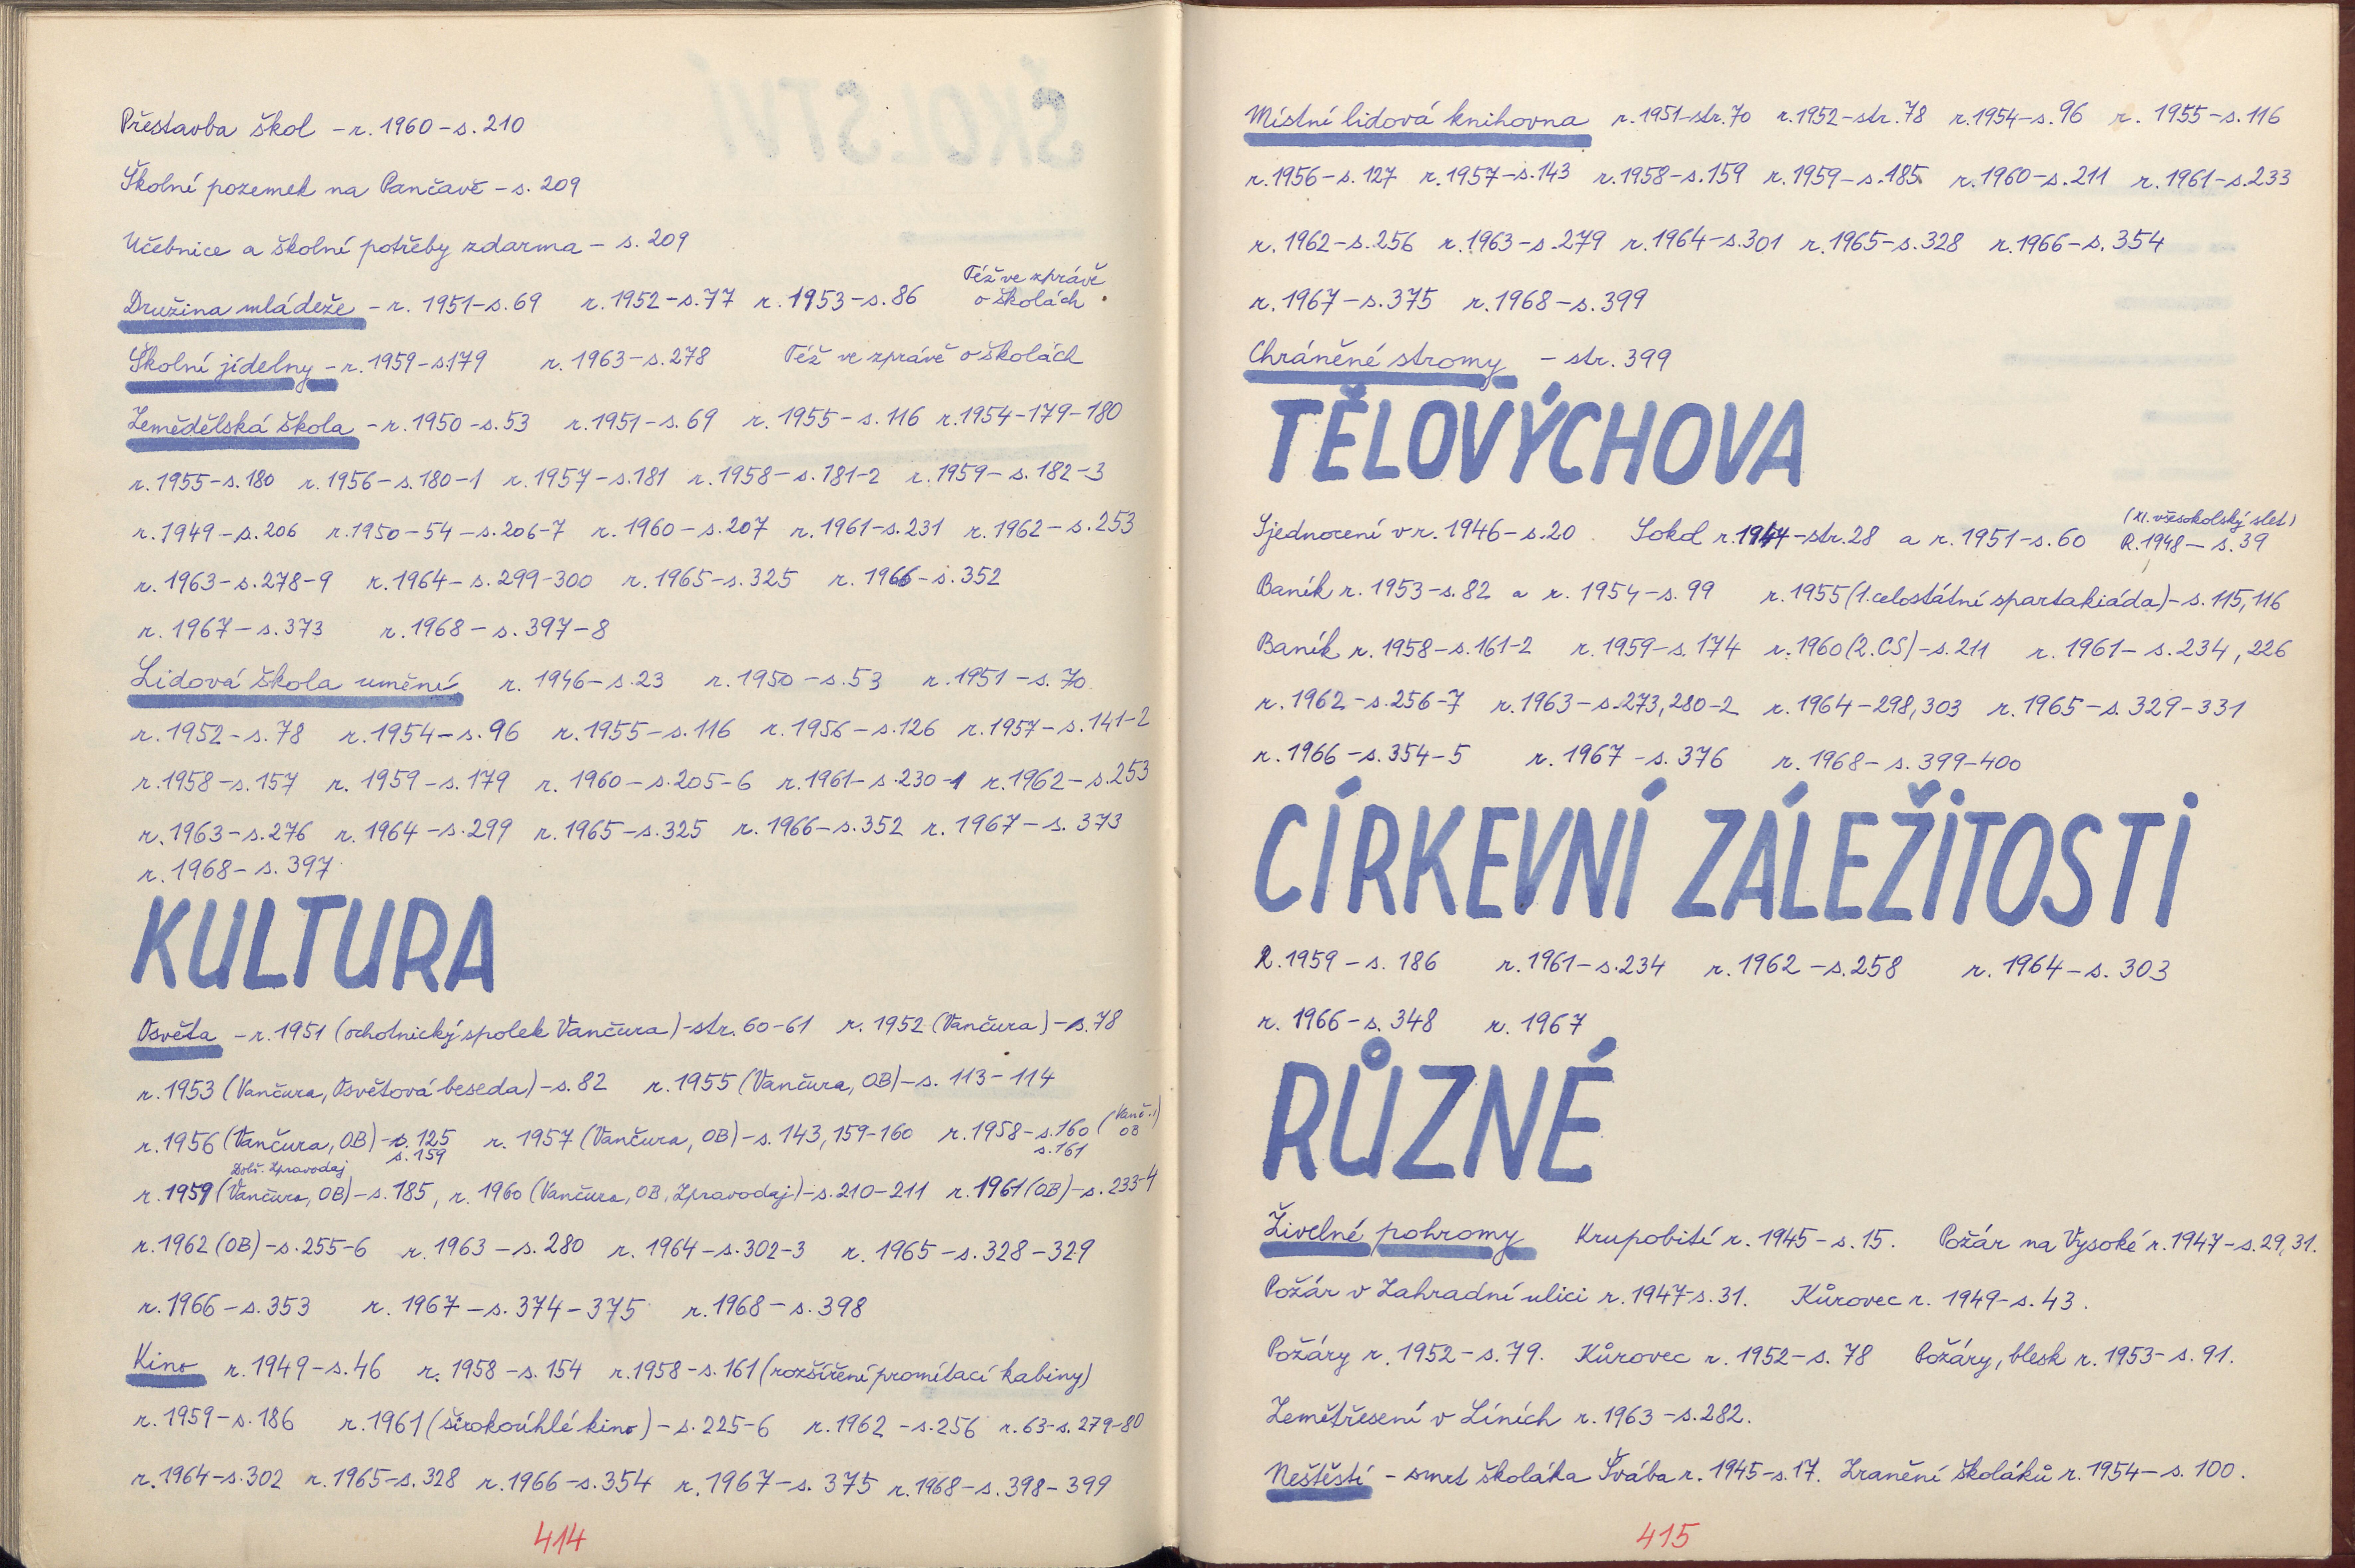 Přestavba škol – r. 1960 – s. 210
Školní pozemek na Pančavě – s. 209
Učebnice a školní potřeby zdarma – s. 209
Družina mládeže – r. 1951 – s. 69 r. 1952 – s. 77 r. 1953 – s. 86 Též ve zprávě o školách.
Školní jídelny – r. 1959 – s. 179 r. 1963 – s. 278 Též ve zprávě o školách
Zemědělská škola – r. 1950 – s. 53 r. 1951 – s. 69 r. 1955 – s. 116 r. 1954 – 179 – 180
r. 1955 – s. 180 r. 1956 – s. 180 – 1 r. 1957 – s. 181 r. 1958 – s. 181 – 2 r. 1959 – s. 182 – 3
r. 1949 – s. 206 r. 1950 – 54 – s. 206 – 7 r. 1960 – s. 207 r. 1961 – s. 231 r. 1962 – s. 253
r. 1963 – s. 278 – 9 r. 1964 – s. 299 – 300 r. 1965 – s. 325 r. 1966 – s. 352
r. 1967 – s. 373 r. 1968 – s. 397 – 8
Lidová škola umění r. 1946 – s. 23 r. 1950 – s. 53 r. 1951 – s. 70
r. 1952 – s. 78 r. 1954 – s. 96 r. 1955 – s. 116 r. 1956 – s. 126 r. 1957 – s. 141 – 2
r. 1958 – s. 157 r. 1959 – s. 179 r. 1960 – s. 205 – 6 r. 1961 – s. 230 – 1 r. 1962 – s. 253
r. 1963 – s. 276 r. 1964 – s. 299 r. 1965 – s. 325 r. 1966 – s. 352 r. 1967 – s. 373
r. 1968 – s. 397
KULTURA
Osvěta – r. 1951 (ochotnický spolek Vančura) – str. 60 – 61 r. 1952 (Vančura) – s. 78
r. 1953 (Vančura, Osvětová beseda) – s. 82 r. 1955 (Vančura, OB) – s. 113 – 114
r. 1956 (Vančura, OB) – s. 125 s. 159 r. 1957 (Vančura, OB) – s. 143, 159 – 160 r. 1958 – s. 160 (Vanč., OB) s. 161
Dobř. Zpravodaj
r. 1959 (Vančura, OB) – s. 185, r. 1960 (Vančura, OB, Zpravodaj) – s. 210 – 211 r. 1961 (OB) – s. 233 – 4
r. 1962 (OB) – s. 255 – 6 r. 1963 – s. 280 r. 1964 – s. 302 – 3 r. 1965 – s. 328 – 329
r. 1966 – s. 353 r. 1967 – s. 374 – 375 r. 1968 – s. 398
Kino r. 1949 – s. 46 r. 1958 – s. 154 r. 1958 – s. 161 (rozšíření promítací kabiny)
r. 1959 – s. 186 r. 1961 (širokoúhlé kino) – s. 225 – 6 r. 1962 – s. 256 r. 63 – s. 279 – 80
r. 1964 – s. 302 r. 1965 – s. 328 r. 1966 – s. 354 r. 1967 – s. 375 r. 1968 – s. 398 – 399
414
Místní lidová knihovna r. 1951 – str. 70 r. 1952 – str. 78 r. 1954 – s. 96 r. 1955 – s. 116
r. 1956 – s. 127 r. 1957 – s. 143 r. 1958 – s. 159 r. 1959 – s. 185 r. 1960 – s. 211 r. 1961 – s. 233
r. 1962 – s. 256 r. 1963 – s. 279 r. 1964 – s. 301 r. 1965 – s. 328 r. 1966 – s. 354
r. 1967 – s. 375 r. 1968 – s. 399
Chráněné stromy – str. 399
TĚLOVÝCHOVA
Sjednocení v r. 1946 – s. 20. Sokol r. 1947 – str. 28 a r. 1951 – s. 60 (XI. všesokolský slet) R. 1948 – s. 39
Baník r. 1953 – s. 82 a r. 1954 – s. 99 r. 1955 (1. celostátní spartakiáda) – s. 115, 116
Baník r. 1958 – s. 161 – 2 r. 1959 – s. 174 r. 1960 (2. CS) – s. 211 r. 1961 – s. 234, 226
r. 1962 – s. 256 – 7 r. 1963 – s. 273, 280 – 2 r. 1964 – 298, 303 r. 1965 – s. 329 – 331
r. 1966 – s. 354 – 5 r. 1967 – s. 376 r. 1968 – s. 399 – 400
CÍRKEVNÍ ZÁLEŽITOSTI
R. 1959 – s. 186 r. 1961 – s. 234 r. 1962 – s. 258 r. 1964 – s. 303
r. 1966 – s. 348 r. 1967
RŮZNÉ
Živelné pohromy Krupobití r. 1945 – s. 15. Požár na Vysoké r. 1947 – s. 29, 31.
Požár v Zahradní ulici r. 1947 – s. 31. Kůrovec r. 1949 – s. 43.
Požáry r. 1952 – s. 79. Kůrovec r. 1952 – s. 78 Požáry, blesk r. 1953 – s. 91.
Zemětřesení v Líních r. 1963 – s. 282.
Neštěstí – smrt školáka Švába r. 1945 – s. 17. Zranění školáků r. 1954 – s. 100.
415